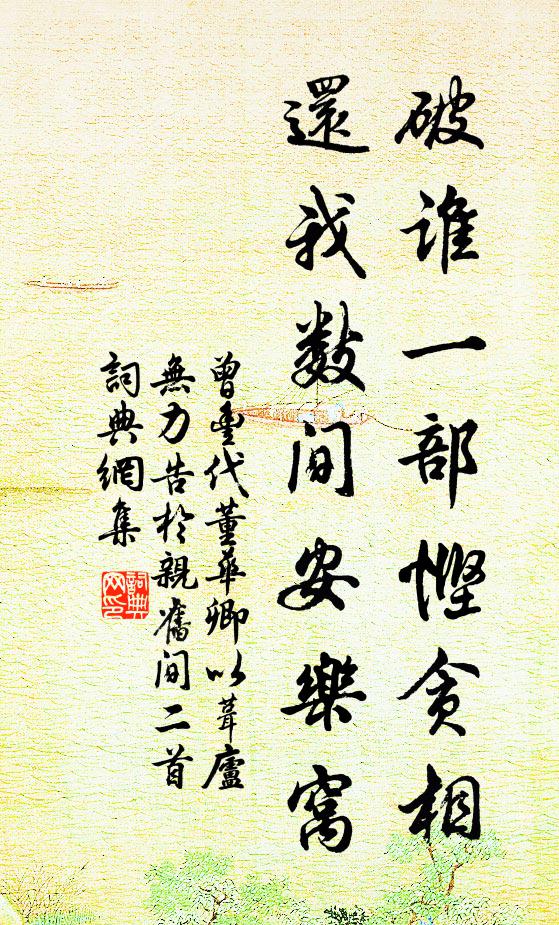 破谁一部慳贪相
還我数间安樂窝
曾豊代董華卿以葺廬
無力告於親舊间二首
詞典網集
詞典网印